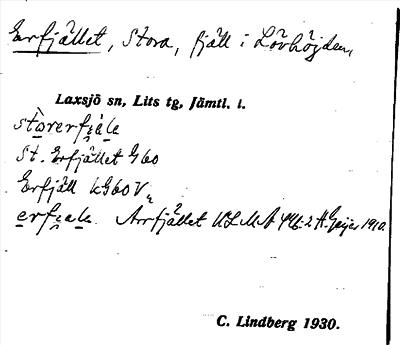 Erfjället, Stora, fjäll i Lövhöjden,
Laxsjö sn, Lits tg, Jämtl. l.
stòrerfjäle
St. Erfjället G60
Erfjäll kG60V
erfjäle. Arrfjället ULMA 2 H. Geijer 1910.
C. Lindberg 1930.